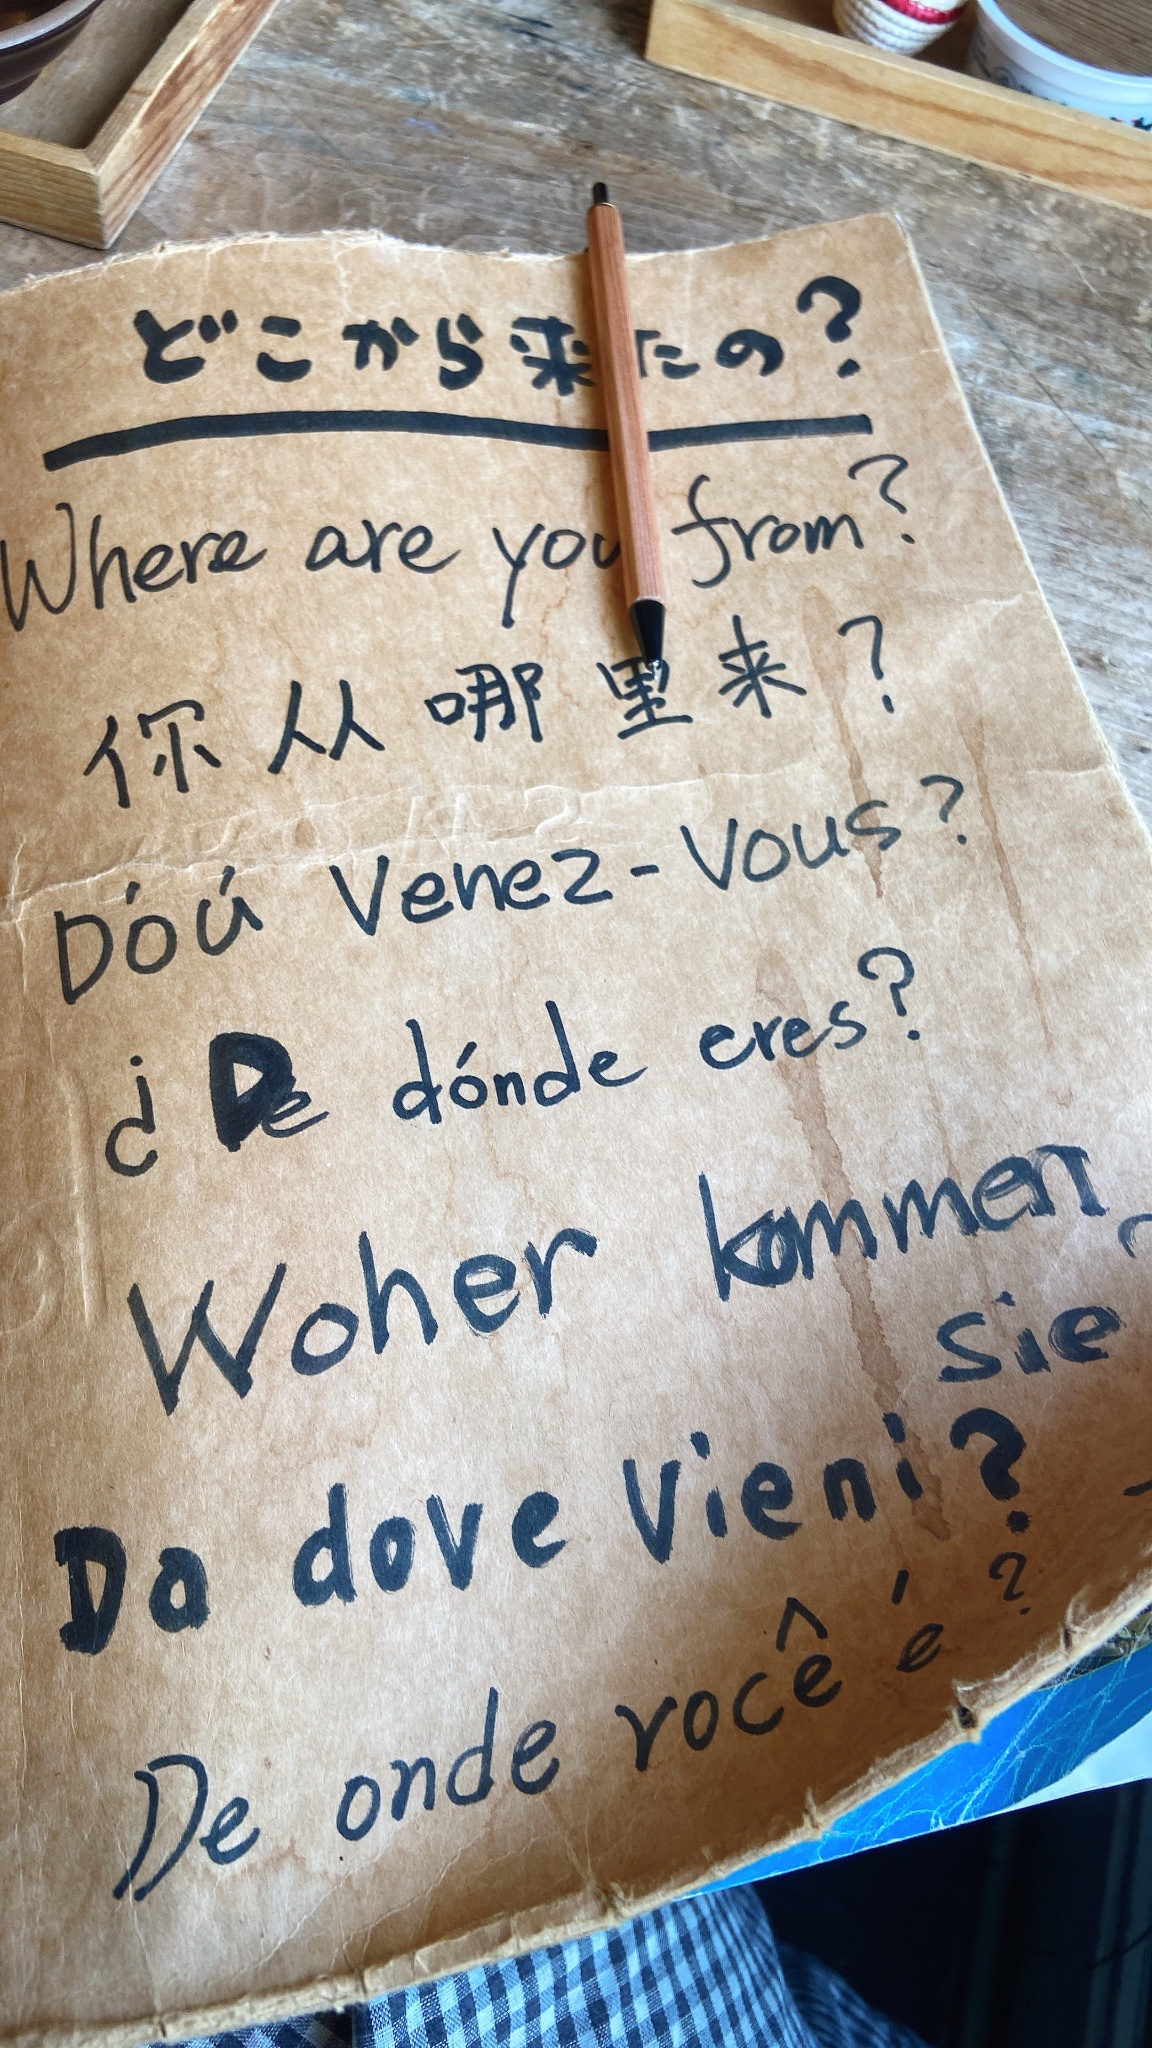 どこから来たの?
Where are you from?
你从哪里来?
D'óú Venez-Vous?
¿De dónde eres?
Woher kommen
sie
Da dove Vieni?
De onde você é?